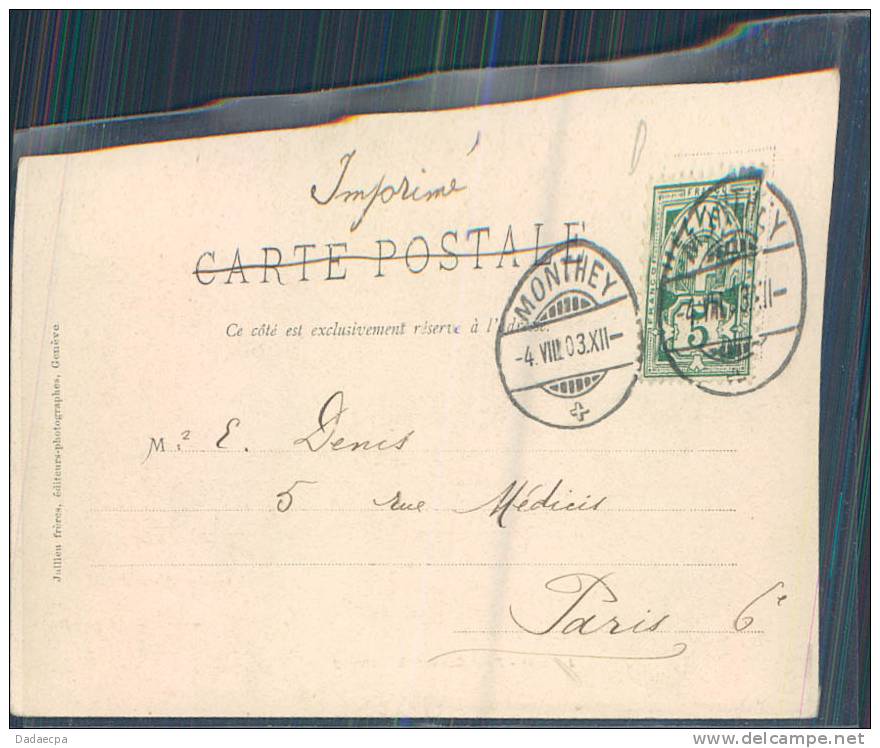 Imprimé
CARTE POSTALE
Ce côté est exclusivement réservé à l'adresse.
MONTHEY
-4.VIII.03.XII-
FRANCO
5
M.r E. Denis
5 rue Médicis
Paris 6e
Jullien frères, éditeurs-photographes, Genève
Dadaecpa
www.delcampe.net